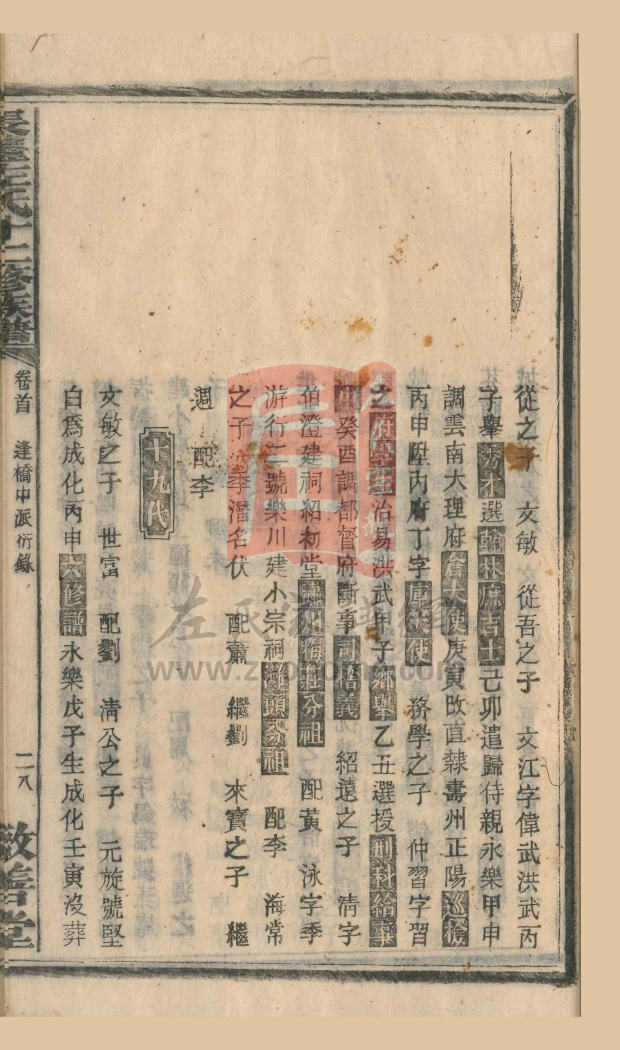 從之子 文敏 從吾之子 文江字偉武洪武丙
子舉秀才選翰林庶吉士己卯遣歸侍親永樂甲申
調雲南大理府倉大使庚寅改直隸壽州正陽巡檢
丙申陞內府丁字庫大使 務學之子 仲習字習
之府學生治易洪武甲子鄉舉乙丑選授刑科給事
中癸酉調都督府斷事司稽義 紹遠之子 清字
伯澄建祠紹初堂 州梅莊分祖 配黃 泳字季
游行二號樂川建小宗祠 頭分祖 配李 海常
之子 季潛名伏 配蕭 繼劉 來寶之子 繼
週 配李
十九代
文敏之子 世富 配劉 清公之子 元旋號堅
白爲成化丙申六修譜永樂戊子生成化壬寅沒葬
王氏十二修族譜
卷首 逢橋中派衍錄
二八
敦善堂
www.z
.com